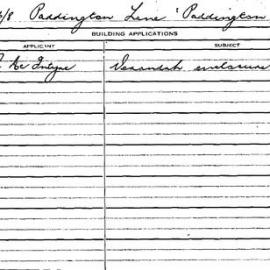 6/8 Paddington Lane Paddington
BUILDING APPLICATIONS
APPLICANT SUBJECT
Mc Intyre Verandah enclosure